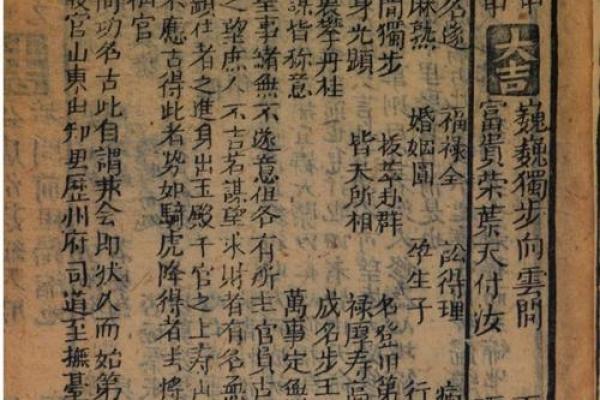 巍巍獨步向雲間
甲大吉富貴榮華天付汝
名遂 福祿全 訟得理 病
麻熟 婚姻圓 孕生子 行
間獨步 拔萃出群 名登甲第
身光顯 皆天所相 祿厚壽
攀丹桂 成名步玉
謀皆稱意 萬事定
事緒無不遂意但各有所主官員占
之望庶人不吉若謀望求財者有名
顯仕者之進身出玉殿千官之上壽山
不應占得此者勢如騎虎降得者主將
官
問功名占此自謂會即狀久而始第
授官山東由知里歷州府司道至撫臺